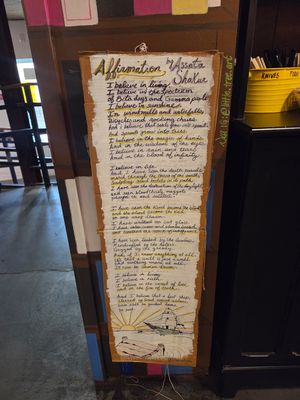 Affirmation
Assata Shakur
I believe in living.
I believe in the spectrum
of Beta days and Gamma people.
I believe in sunshine.
In windmills and waterfalls,
tricycles and rocking chairs.
And I believe that seeds grow into sprouts.
And sprouts grow into trees.
I believe in the magic of the hands.
And in the wisdom of the eyes.
I believe in rain and tears.
And in the blood of infinity.
I believe in life.
And I have seen the death parade
march through the torso of the earth,
sculpting mud bodies in its path.
I have seen the destruction of the daylight,
and seen bloodthirsty maggots
prayed to and saluted.
I have seen the kind become the blind
and the blind become the bind
in one easy lesson.
I have walked on cut glass.
I have been locked by the lawless.
Handcuffed by the haters.
Gagged by the greedy.
And, if I know anything at all,
it's that a wall is just a wall
and nothing more at all.
It can be broken down.
I believe in living.
I believe in birth.
I believe in the sweat of love
and in the fire of truth.
And I believe that a lost ship,
steered by tired, seasick sailors,
can still be guided home
to port.
KNIVES